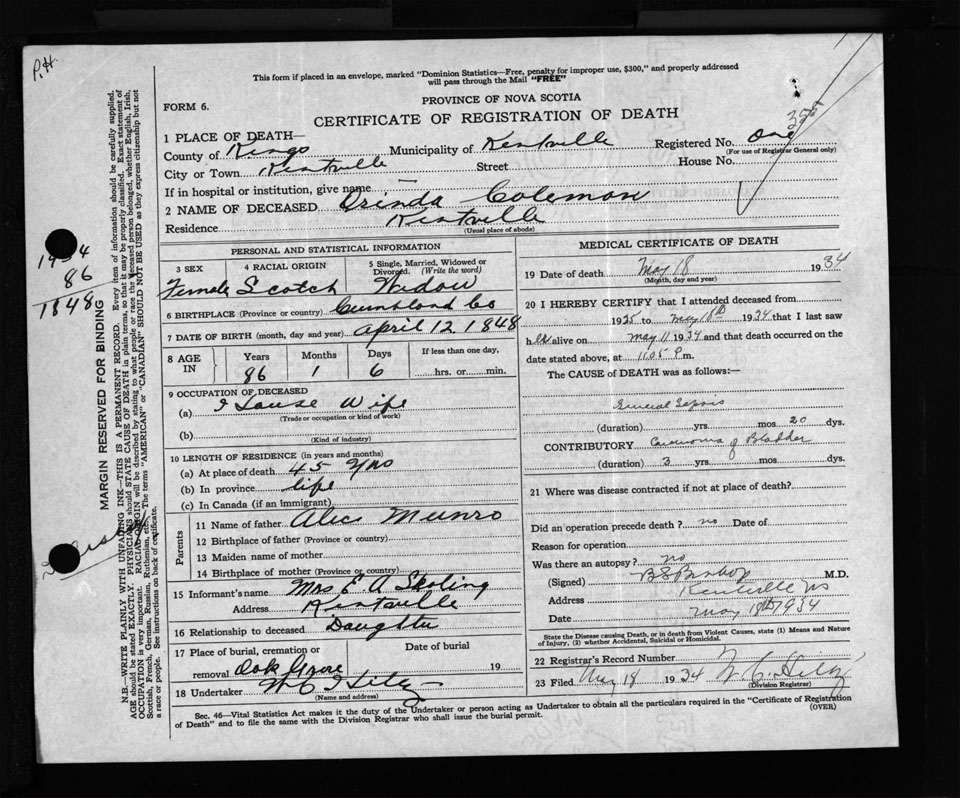 P.H.
This form if placed in an envelope, marked "Dominion Statistics—Free, penalty for improper use, $300," and properly addressed
will pass through the Mail "FREE"
FORM 6.
PROVINCE OF NOVA SCOTIA
CERTIFICATE OF REGISTRATION OF DEATH
1 PLACE OF DEATH—
County of Kings Municipality of Kentville Registered No. One
(For use of Registrar General only)
City or Town Kentville Street House No.
If in hospital or institution, give name —
2 NAME OF DECEASED Orinda Coleman
Residence Kentville
(Usual place of abode)
MARGIN RESERVED FOR BINDING
N.B.—WRITE PLAINLY WITH UNFADING INK—THIS IS A PERMANENT RECORD. Every item of information should be carefully supplied.
AGE should be stated EXACTLY. PHYSICIANS should STATE CAUSE OF DEATH in plain terms, so that it may be properly classified. Exact statement of
OCCUPATION is very important. RACIAL ORIGIN will be described by stating to what people or race the deceased person belonged, whether English, Irish,
Scottish, French, German, Russian, Ruthenian, etc. The terms "AMERICAN" or "CANADIAN" SHOULD NOT BE USED as they express citizenship but not
a race or people. See instructions on back of certificate.
86
1848
PERSONAL AND STATISTICAL INFORMATION
3 SEX
4 RACIAL ORIGIN
5 Single, Married, Widowed or
Divorced. (Write the word)
Female Scotch Widow
6 BIRTHPLACE (Province or country) Cumbland Co
7 DATE OF BIRTH (month, day and year) April 12 1848
8 AGE
IN
Years Months Days If less than one day,
86 1 6 hrs. or min.
9 OCCUPATION OF DECEASED
(a) House Wife
(Trade or occupation or kind of work)
(b)
(Kind of industry)
10 LENGTH OF RESIDENCE (in years and months)
(a) At place of death 45 yrs
(b) In province life
(c) In Canada (if an immigrant)
Parents
11 Name of father Alec Munro
12 Birthplace of father (Province or country)
13 Maiden name of mother
14 Birthplace of mother (Province or country)
15 Informant's name Mrs E A
Address Kentville
16 Relationship to deceased Daughter
17 Place of burial, cremation or
removal Oak Grove
Date of burial
19
18 Undertaker W C Hiltz
(Name and address)
MEDICAL CERTIFICATE OF DEATH
19 Date of death May 18 1934
(Month, day and year)
20 I HEREBY CERTIFY that I attended deceased from
1925 to May 18th 1934 that I last saw
h er alive on May 11 1934 and that death occurred on the
date stated above, at 11.05 P.m.
The CAUSE of DEATH was as follows:—
General Sepsis
(duration) yrs. mos. 20 dys.
CONTRIBUTORY Carcinoma of Bladder
(duration) 3 yrs. mos. dys.
21 Where was disease contracted if not at place of death?
Did an operation precede death? no Date of
Reason for operation
Was there an autopsy? no
(Signed) B S Bishop M.D.
Address Kentville NS
Date May 18th 1934
State the Disease causing Death, or in death from Violent Causes, state (1) Means and Nature
of Injury, (2) whether Accidental, Suicidal or Homicidal.
22 Registrar's Record Number
23 Filed May 18 1934 W. C. Hiltz
(Division Registrar)
Sec. 46—Vital Statistics Act makes it the duty of the Undertaker or person acting as Undertaker to obtain all the particulars required in the "Certificate of Registration
of Death" and to file the same with the Division Registrar who shall issue the burial permit.
(OVER)